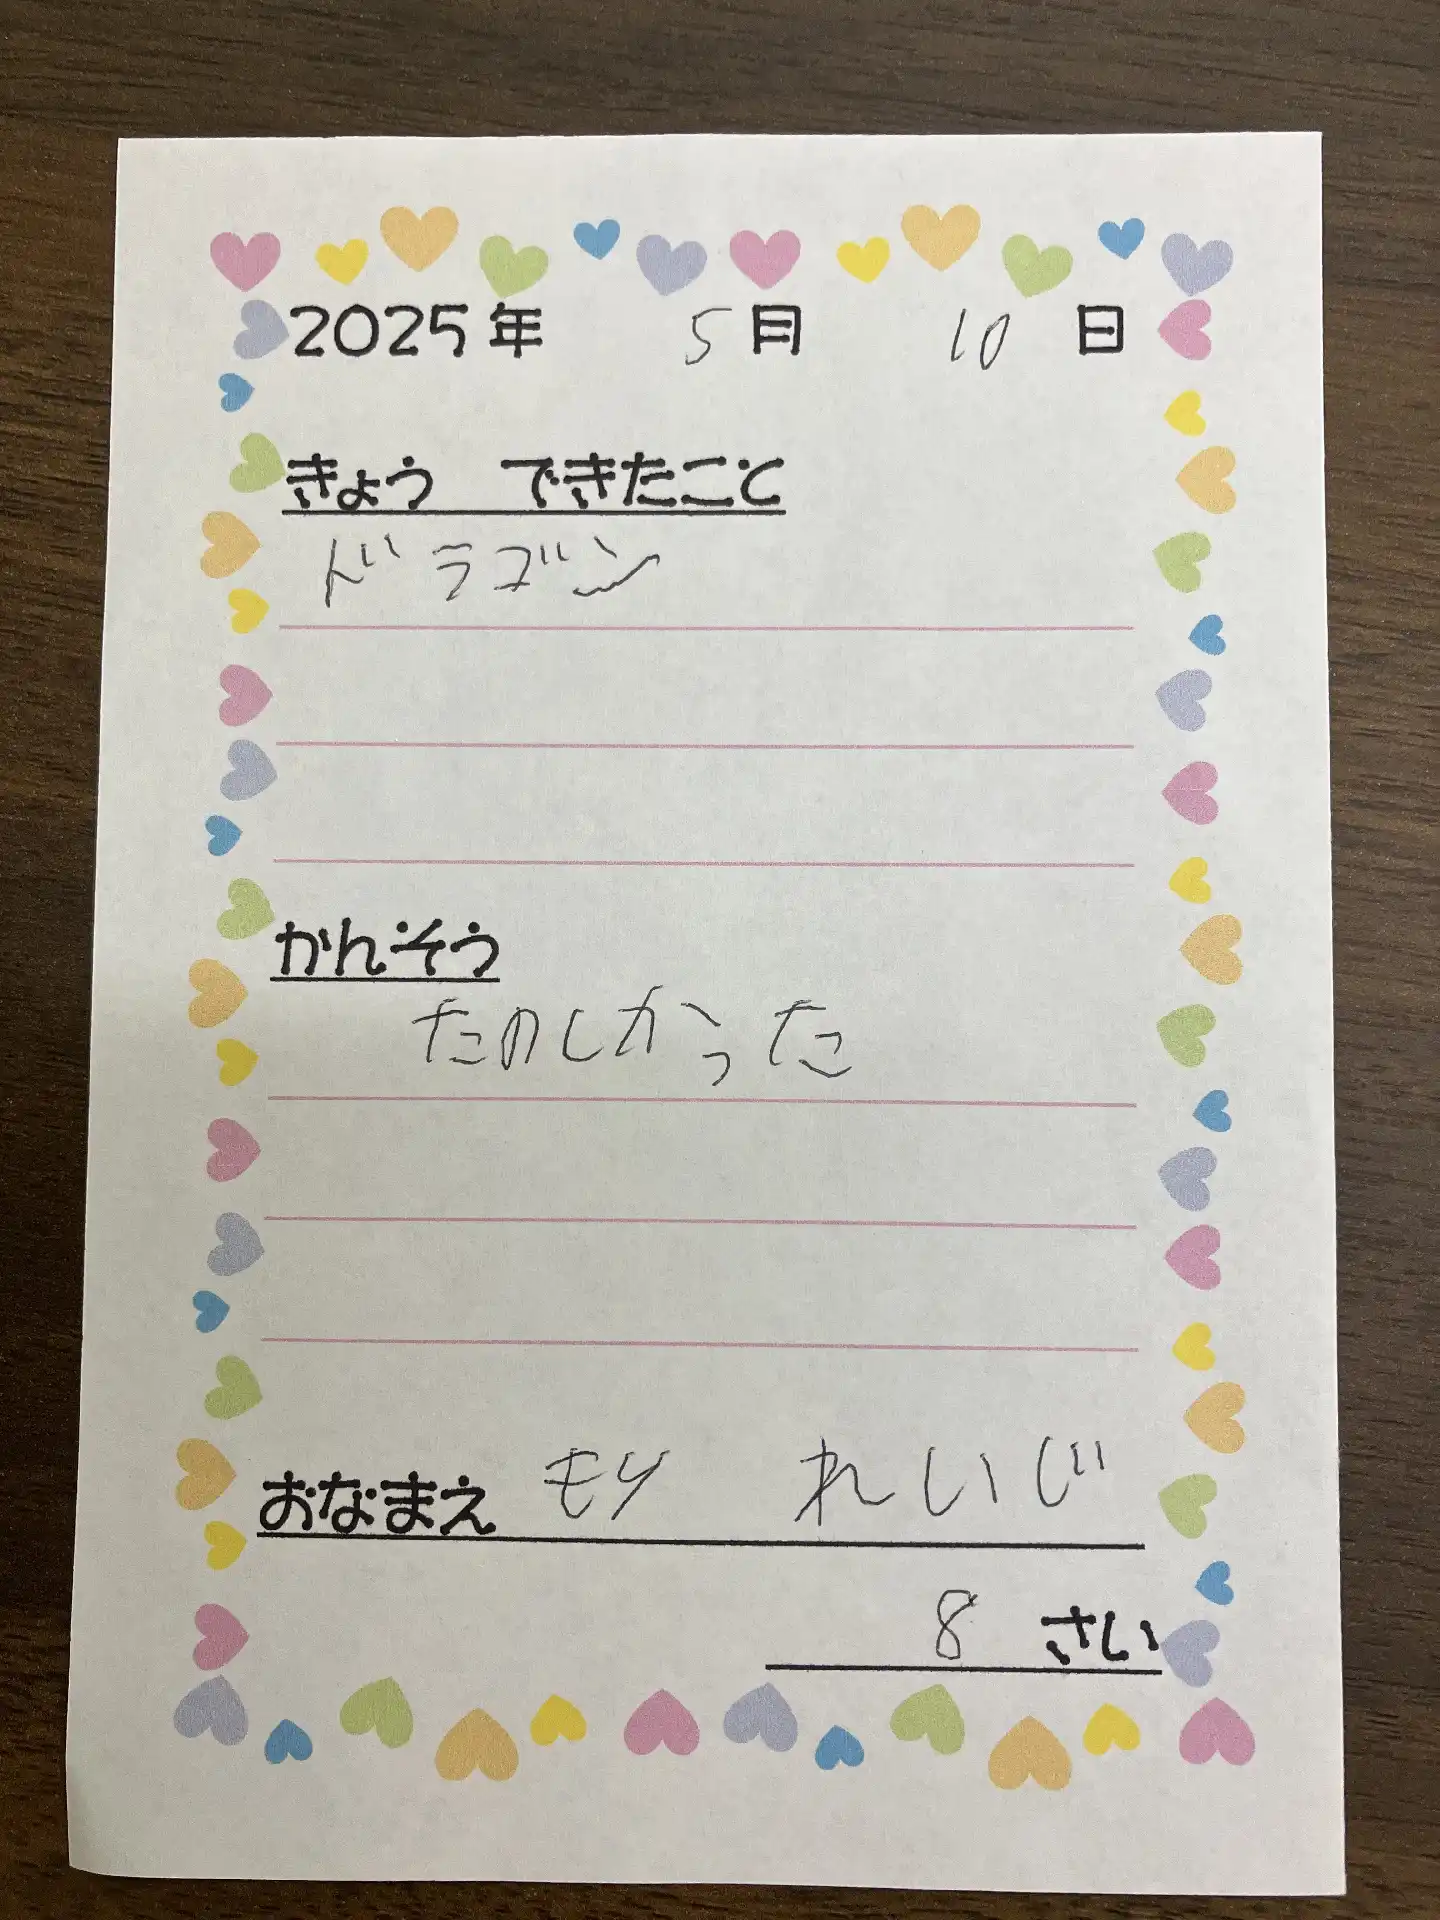 2025年 5月 10日
きょう できたこと
ドラゴン
かんそう
たのしかった
おなまえ もり れいじ
8 さい